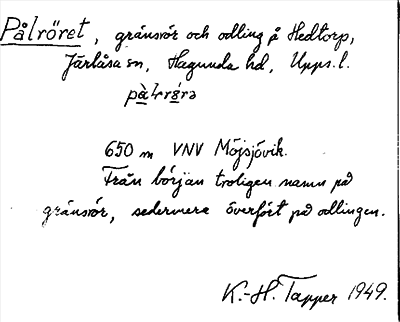 Pålröret, gränsrör och odling å Hedtorp,
Järlåsa sn, Hagunda hd, Upps. l.
pàlrö́rə
650 m VNV Möjsjövik.
Från början troligen namn på
gränsrör, sedermera överfört på odlingen.
K.-H. Tapper 1949.